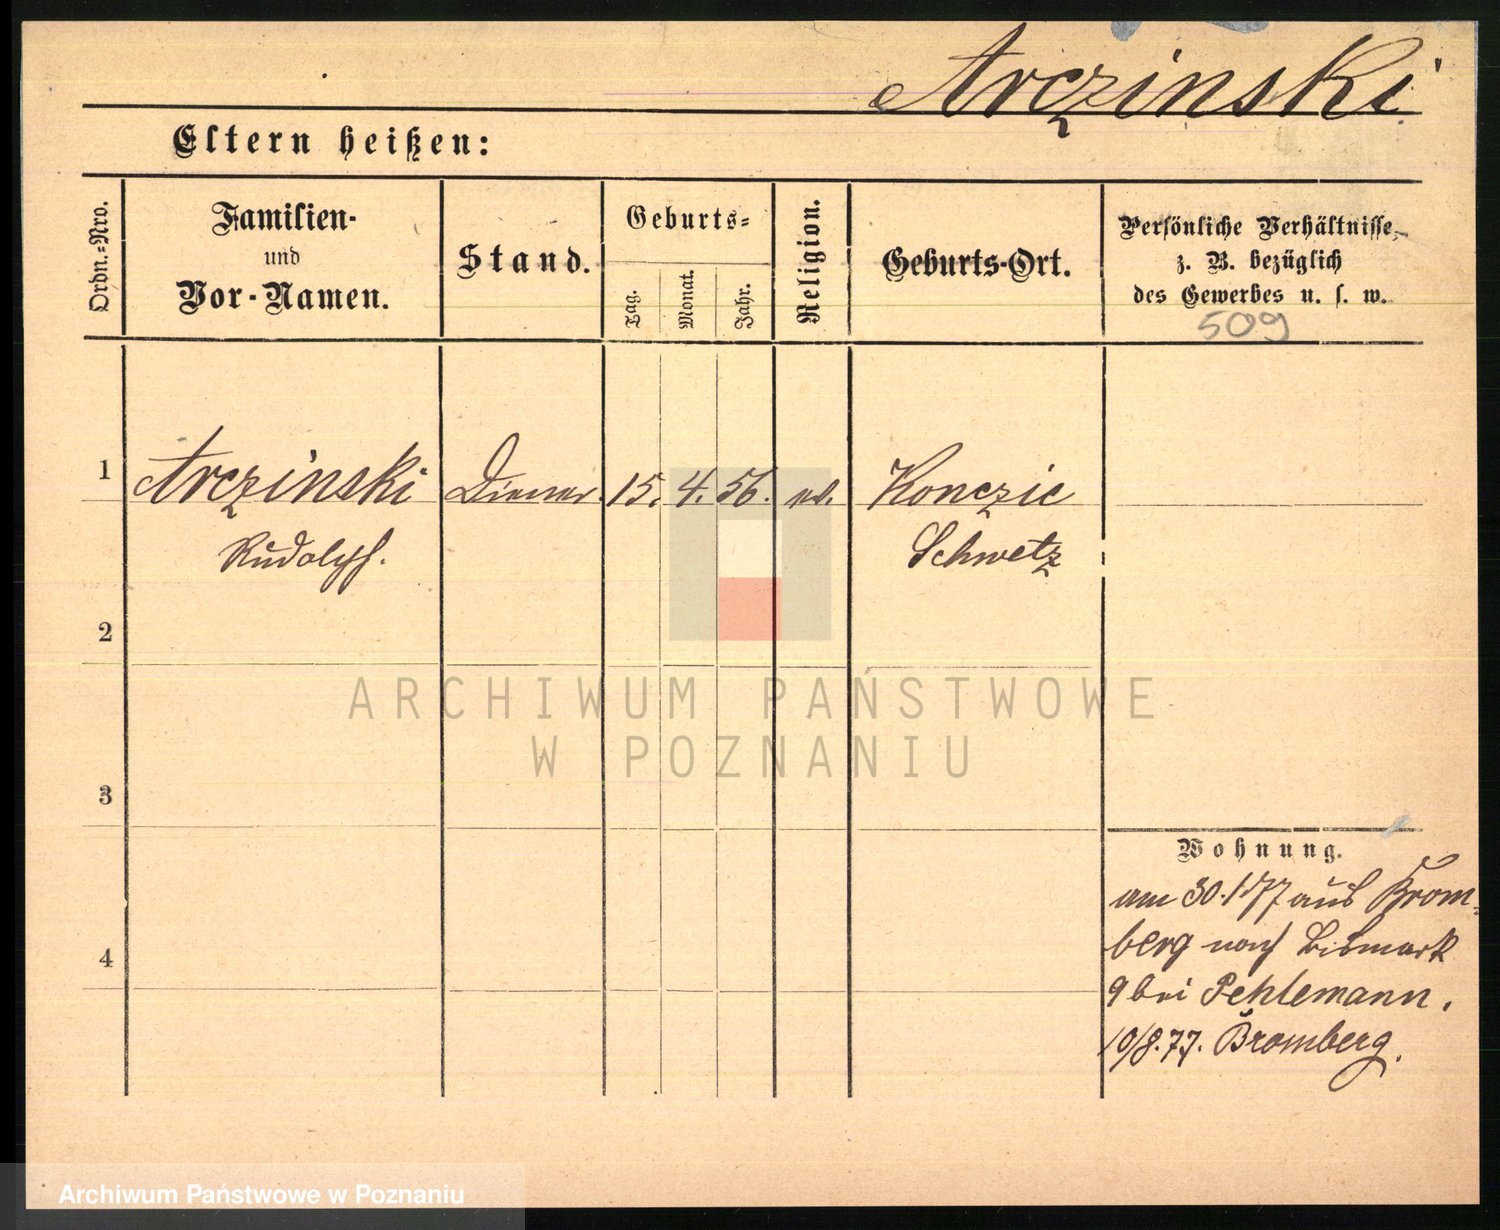 Arczinski
Eltern heißen:
Ordn.-Nro.
Familien-
und
Vor-Namen.
Stand.
Geburts-
Tag.
Monat.
Jahr.
Religion.
Geburts-Ort.
Persönliche Verhältnisse,
z. B. bezüglich
des Gewerbes u. s. w.
509
1 Arczinski Diener. 15. 4. 56. Konczic
Rudolph. Schwetz
2
3
4
Wohnung.
am 30. 77 aus Brom-
berg nach Bismark
9 bei Pehlemann.
10/8.77. Bromberg.
ARCHIWUM PAŃSTWOWE
W POZNANIU
Archiwum Państwowe w Poznaniu